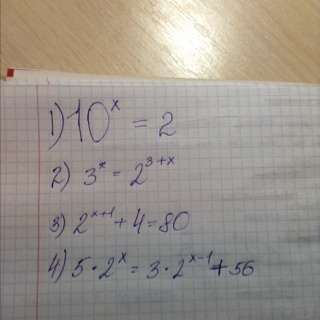 1) 10^x = 2
2) 3^x = 2^{3+x}
3) 2^{x+1} + 4 = 80
4) 5 · 2^x = 3 · 2^{x-1} + 56